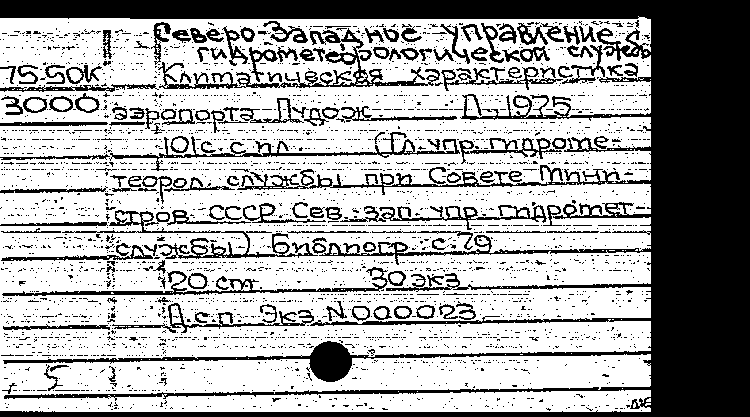 Северо-Западное управление
гидрометеорологической службы
75-50к Климатическая характеристика
3000 аэропорта Пудож. Л., 1975
101с. с ил. (Гл. упр. гидроме-
теорол. службы при Совете Мини-
стров СССР. Сев.-зап. упр. гидромет-
службы) Библиогр. с. 79
20 см. 30 экз.
Д.с.п. Экз. N 000023
5